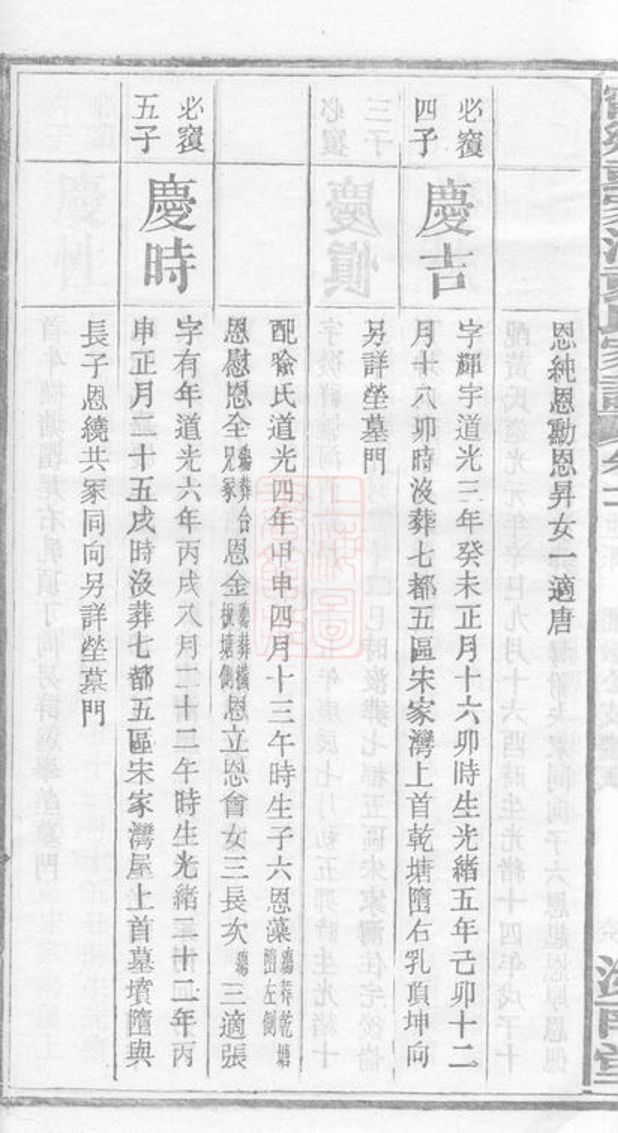 恩純恩勳恩昇女一適唐
必獲
四子
慶吉
字輝宇道光三年癸未正月十六卯時生光緒五年己卯十二
月廿八卯時沒葬七都五區宋家灣上首乾塘墮右乳頂坤向
另詳塋墓門
配喻氏道光四年甲申四月十三午時生子六恩藻殤葬乾塘墮左側
恩慰恩全殤葬台兄冢恩金殤葬橫板塘側恩立恩會女三長次殤三適張
必獲
五子
慶時
字有年道光六年丙戌八月二十二午時生光緒三十二年丙
申正月二十五戌時沒葬七都五區宋家灣屋上首墓墳墮與
長子恩繞共冢同向另詳塋墓門